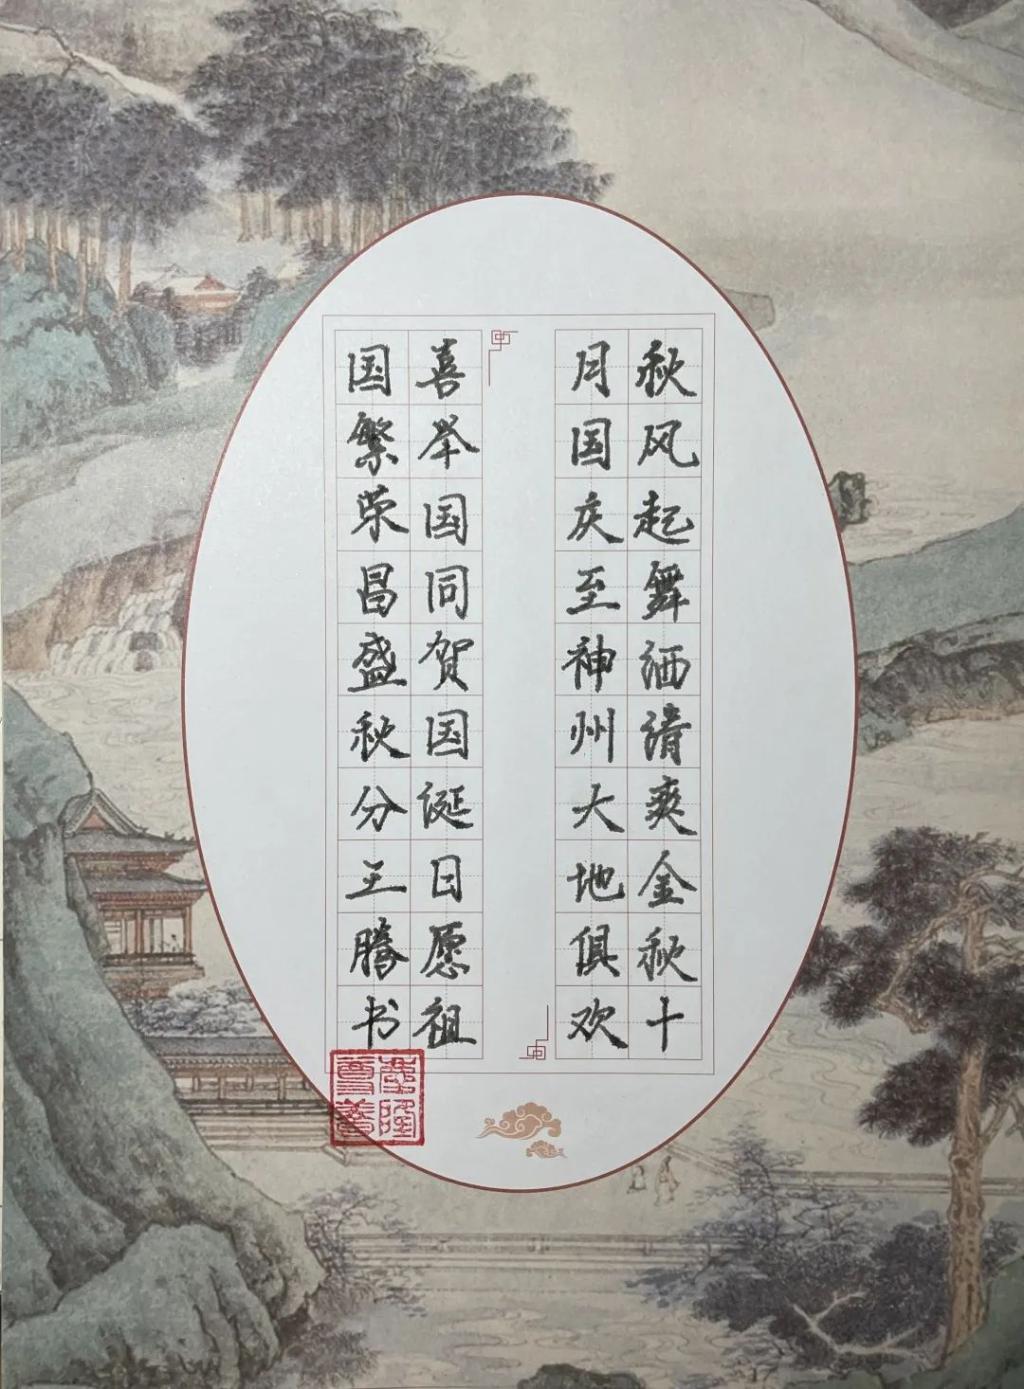 秋风起舞洒清爽金秋十
月国庆至神州大地俱欢
喜举国同贺国诞日愿祖
国繁荣昌盛秋分王腾书